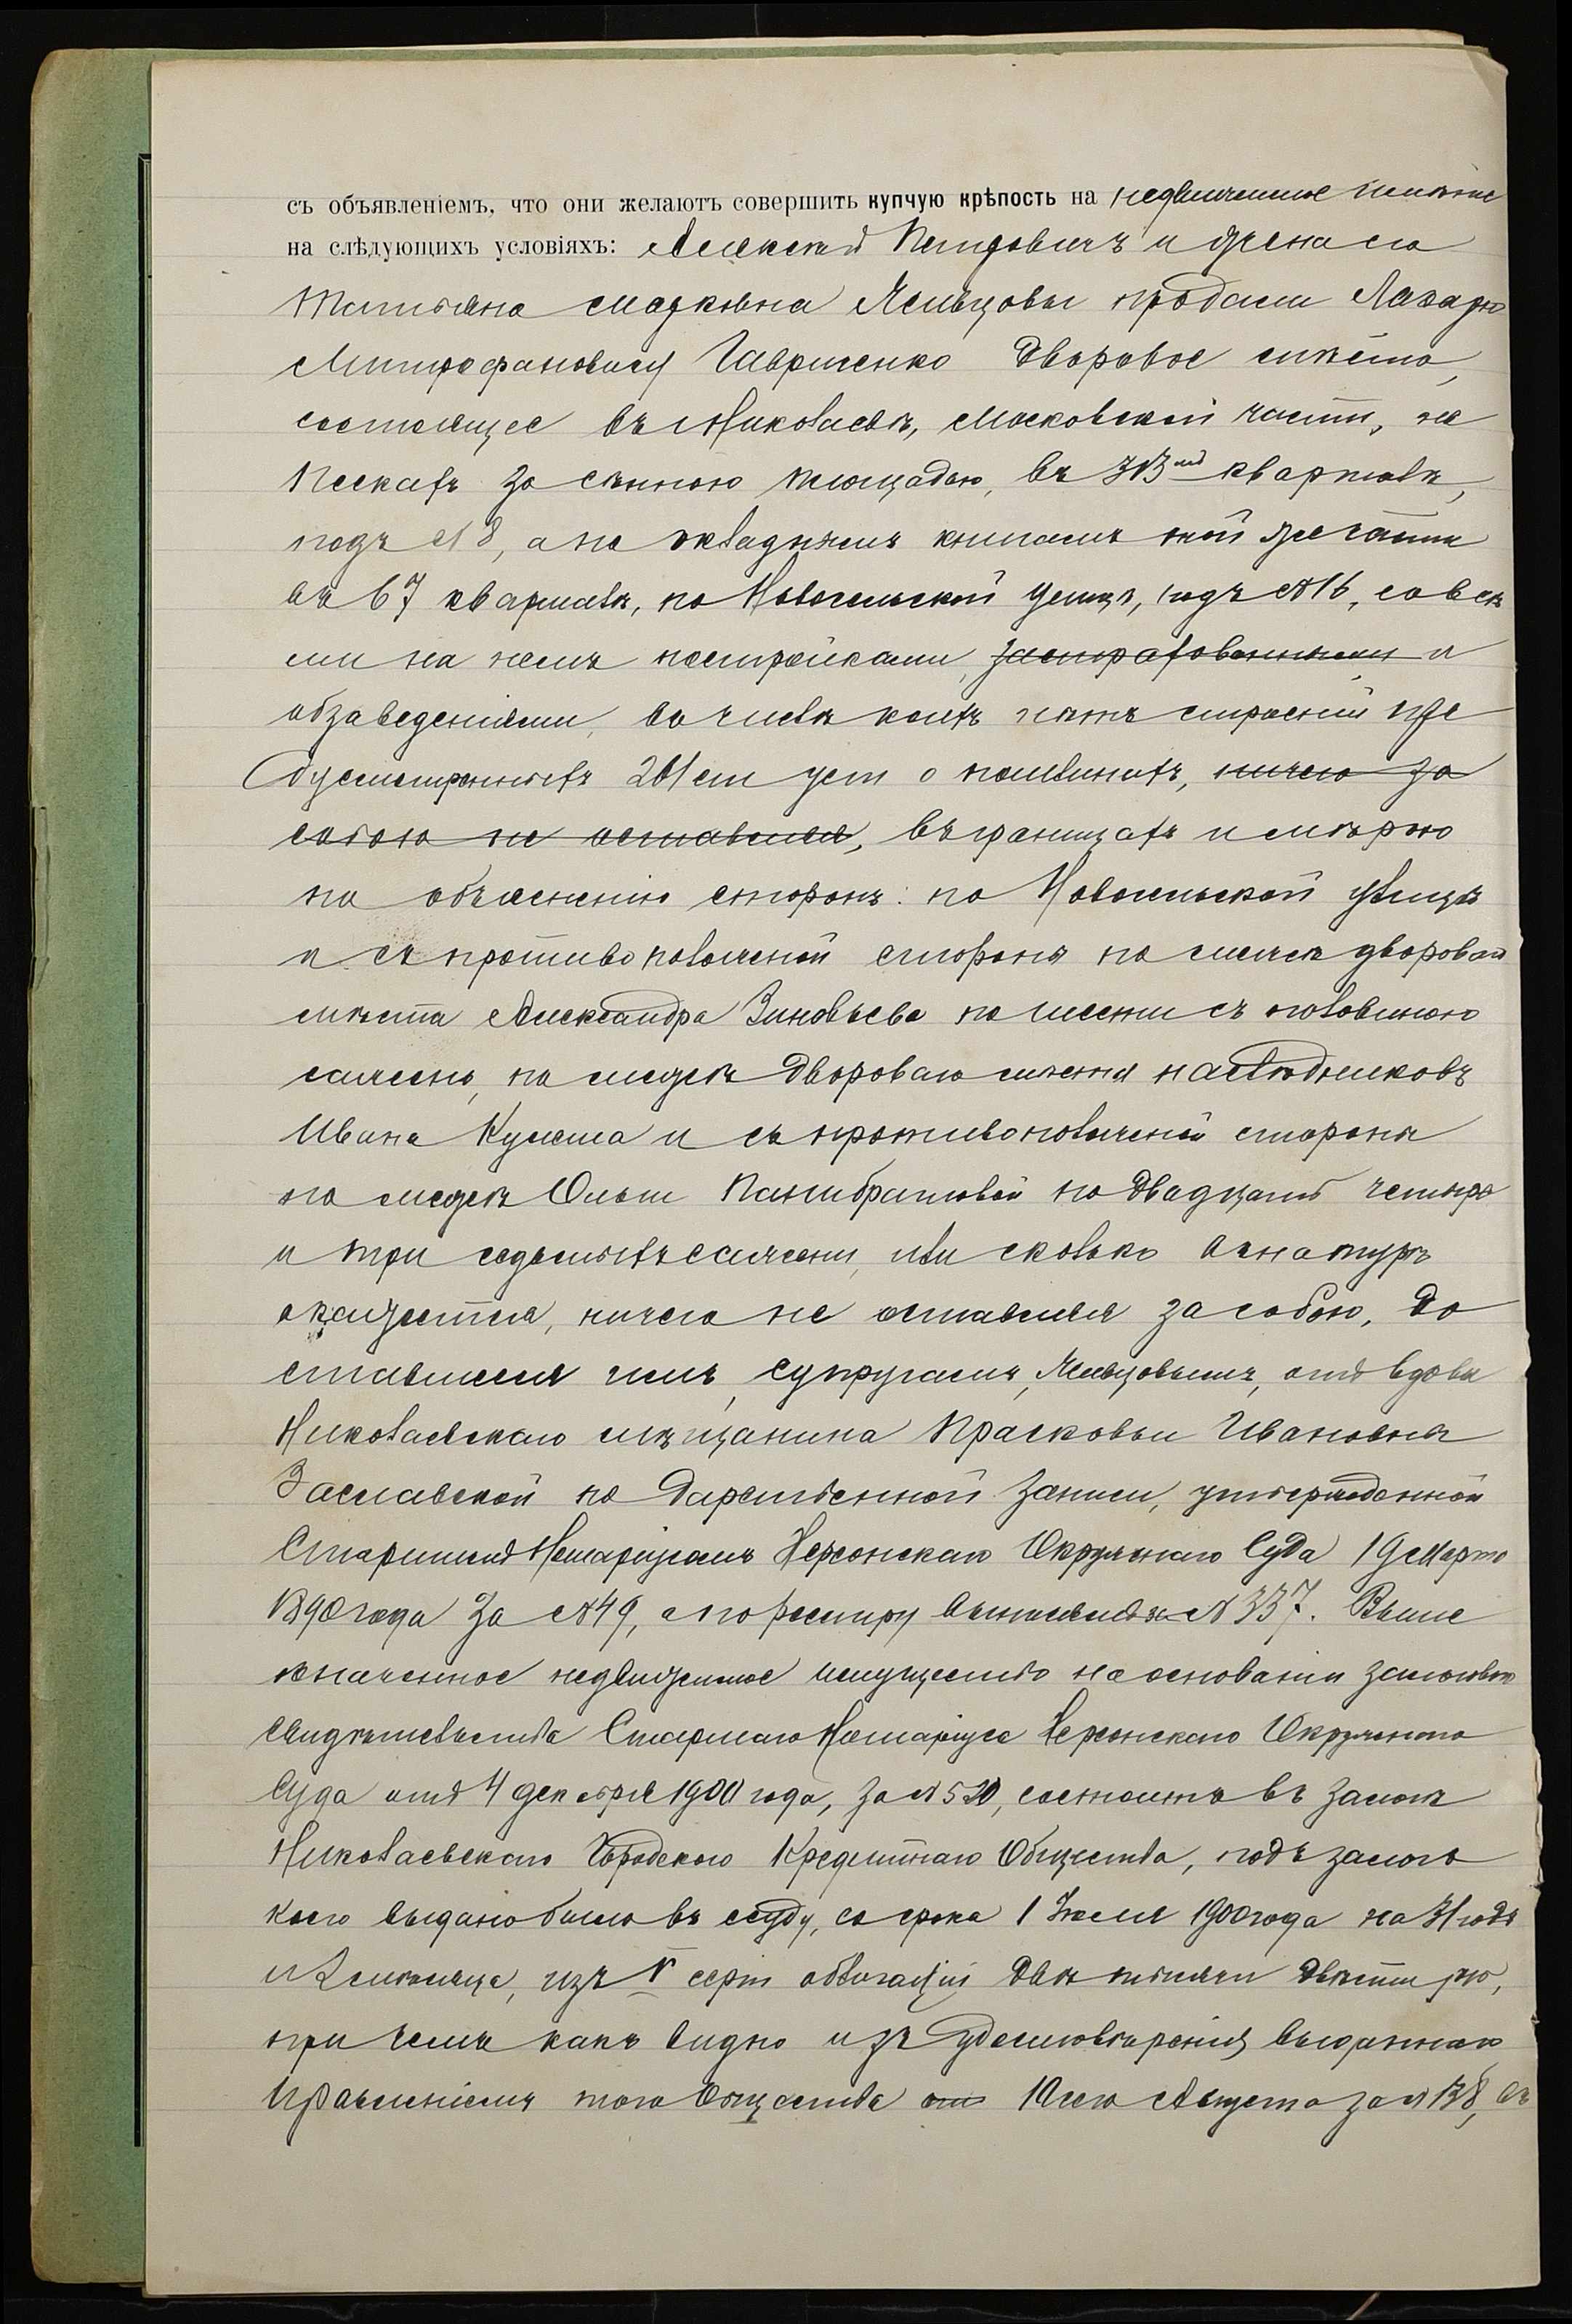 съ объявленіемъ, что они желаютъ совершить купчую крѣпость на недвижимое имѣніе
на слѣдующихъ условіяхъ: Алексѣй Петровичъ и жена его
Татьяна Марковна Мельцовы продали Лазарю
Митрофановичу Гавриленко дворовое мѣсто,
состоящее въ г. Николаевѣ, Московской части, на
Пескахъ за Сѣнною площадью, въ 313мъ кварталѣ,
подъ № 8, а по окладнымъ книгамъ той же части
въ 67 кварталѣ, по Новосельской улицѣ, подъ № 16, со всѣ
ми на немъ постройками, застрахованными и
обзаведеніями, въ числѣ коихъ нѣтъ строеній пре
дусмотрѣнныхъ 201 ст уст о пошлинахъ, ничего за
собою не оставляя, въ границахъ и мѣрою
по объясненію сторонъ: по Новосельской улицѣ
и съ противоположной стороны по межѣ двороваго
мѣста Александра Зиновьева по шести съ половиною
сажень, по межѣ двороваго мѣста наслѣдниковъ
Ивана Кулеша и съ противоположной стороны
по межѣ Ольги Панибратовой по двадцать четыре
и три седьмыхъ сажени, или сколько въ натурѣ
окажется, ничего не оставляя за собою, до
ставшееся имъ, супругамъ, Мельцовымъ, отъ вдовы
Николаевскаго мѣщанина Прасковьи Ивановны
Заславской по дарственной записи, утвержденной
Старшимъ Нотаріусомъ Херсонскаго Окружнаго Суда 19 Марта
1890 года за № 49, а по реестру № 337. Выше
означенное недвижимое имущество на основаніи залоговаго
свидѣтельства Старшаго Нотаріуса Херсонскаго Окружнаго
Суда отъ 4 декабря 1900 года, за № 520, состоитъ въ залогѣ
Николаевскаго Городского Кредитнаго Общества, подъ залогъ
коего выдано было въ ссуду, со срока 1 Іюля 1900 года на 31 годъ
и 2 мѣсяца, изъ V серіи облигацій двѣ тысячи двѣсти руб,
при чемъ какъ видно изъ удостовѣренія, выданнаго
Правленіемъ того Общества отъ 10 сего Августа за № 138, въ